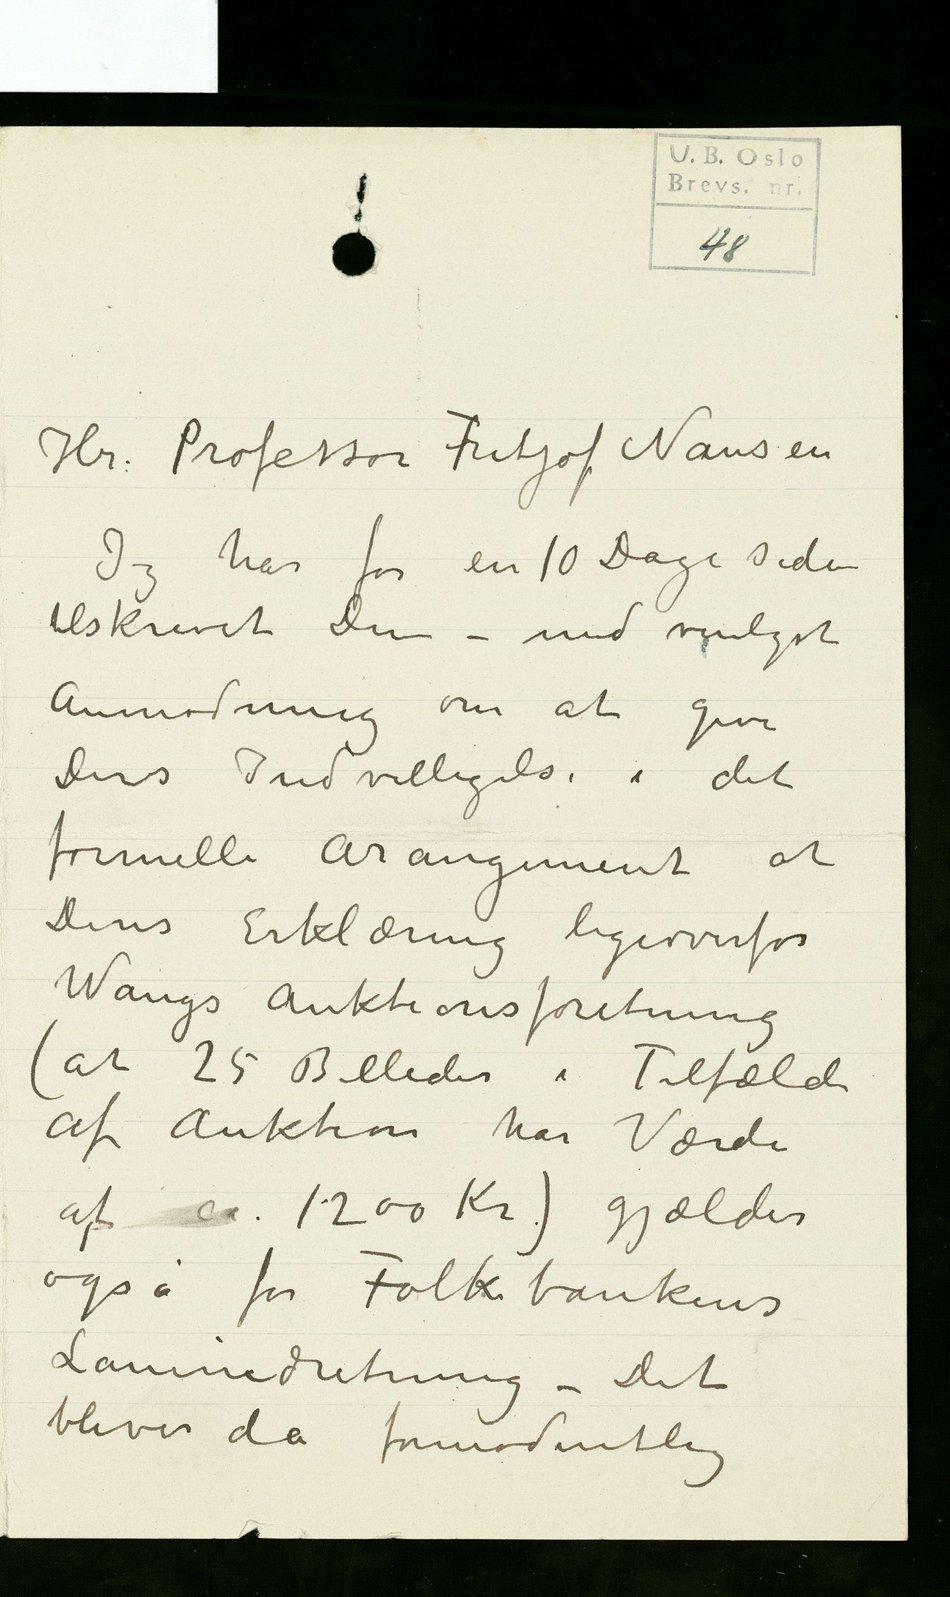 U. B. Oslo
Brevs. nr.
48
Hr. Professor Fritjof Nansen
Jeg har for en 10 Dage siden
tilskrevet Dem – med venligst
Anmodning om at give
Deres Indvilligelse i det
formelle Arangement at
Deres Erklæring ligeoverfor
Wangs Auktionsforetning
(at 25 Billeder i Tilfælde
af Auktion har Værdi
af ca. 1200 Kr.) gjælder
også for Folkebankens
Låneindretning – Det
bliver da formodentlig